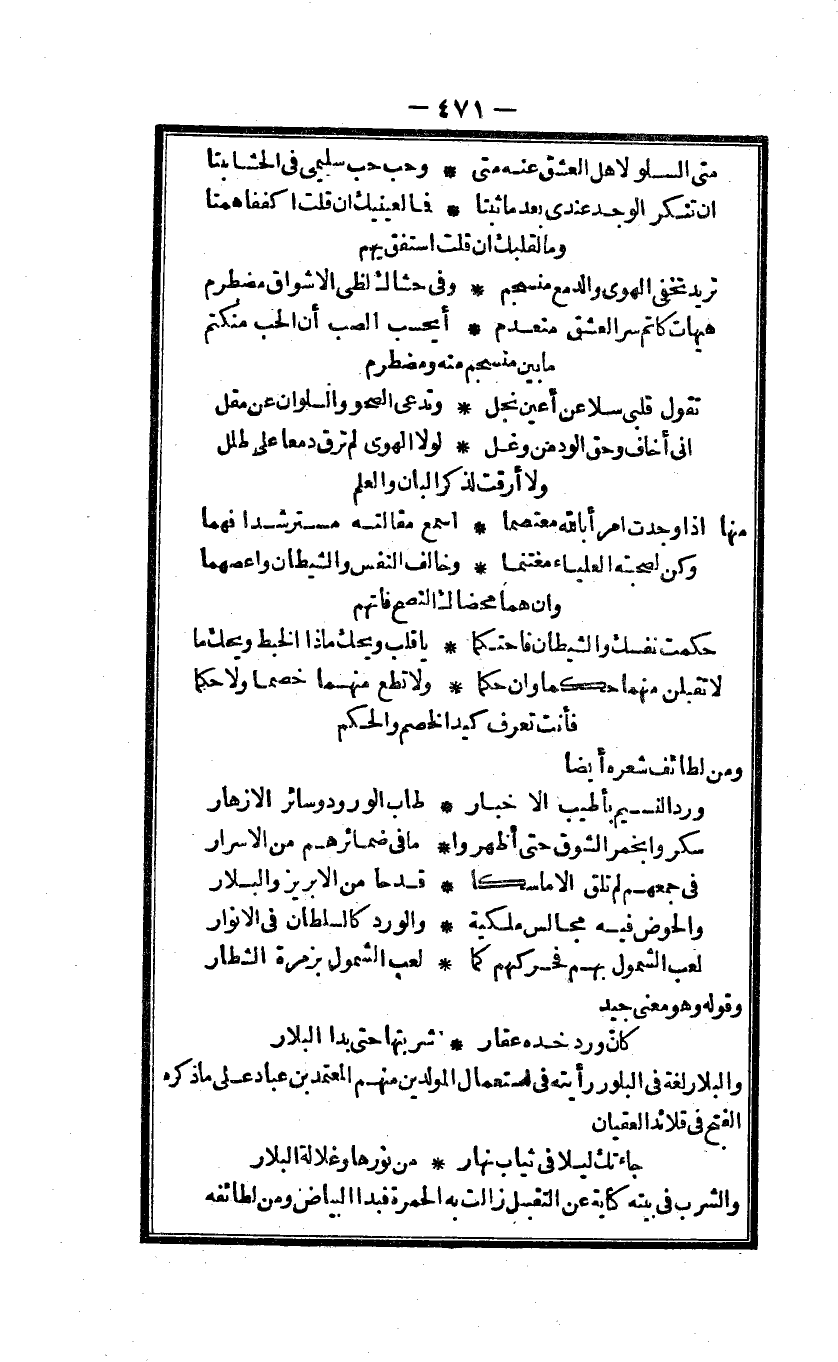 — ٤٧١ —
متى السلو لاهل العشق عنه متى * وحب حب سليمى فى الحشا بتا
ان تنكر الوجد عندى بعد ما ثبتا * فما لعينيك ان قلت اكففا همتا
وما لقلبك ان قلت استفق يهم
تريد تخفى الهوى والدمع منسجم * وفى حشاك لظى الاشواق مضطرم
هيهات كاتم سر العشق منعدم * أيحسب الصب أن الحب منكتم
ما بين منسجم منه ومضطرم
تقول قلبى سلا عن أعين نجل * وتدعى الصحو والسلوان عن مقل
انى أخاف وحق الود من وغل * لولا الهوى لم ترق دمعا على طلل
ولا أرقت لذكر البان والعلم
منها اذا وجدت امرأ بالله معتصما * اسمع مقالته مسترشدا فهما
وكن لصحبته العلياء مغتنما * وخالف النفس والشيطان واعصهما
وان هما محضاك النصح فاتهم
حكمت نفسك والشيطان فاحتكما * ياقلب ويحك ماذا الخبط ويحك ما
لا تقبلن منهما حكما وان حكما * ولا تطع منهما خصما ولا حكما
فأنت تعرف كيد الخصم والحكم
ومن لطائف شعره أيضا
ورد النسيم بأطيب الاخبار * طاب الورود وسائر الازهار
سكروا بخمر الشوق حتى أظهروا * مافى ضمائرهم من الاسرار
فى جمعهم لم تلق الا ماسكا * قدحا من الابريز والبلار
والحوض فيه مجالس ملكية * والورد كالسلطان فى الانوار
لعب الشمول بهم فحركهم كما * لعب الشمول بزمرة الشطار
وقوله وهو معنى جيد
كان ورد خده عقار * شربتها حتى بدا البلار
والبلار لغة فى البلور رأيته فى استعمال المولدين منهم المعتمد بن عباد على ماذكره
الفتح فى قلائد العقيان
جاءتك ليلا فى ثياب نهار * من نورها وغلالة البلار
والشرب فى بيته كناية عن التقبيل زالت به الحمرة فبدا البياض ومن لطائفه